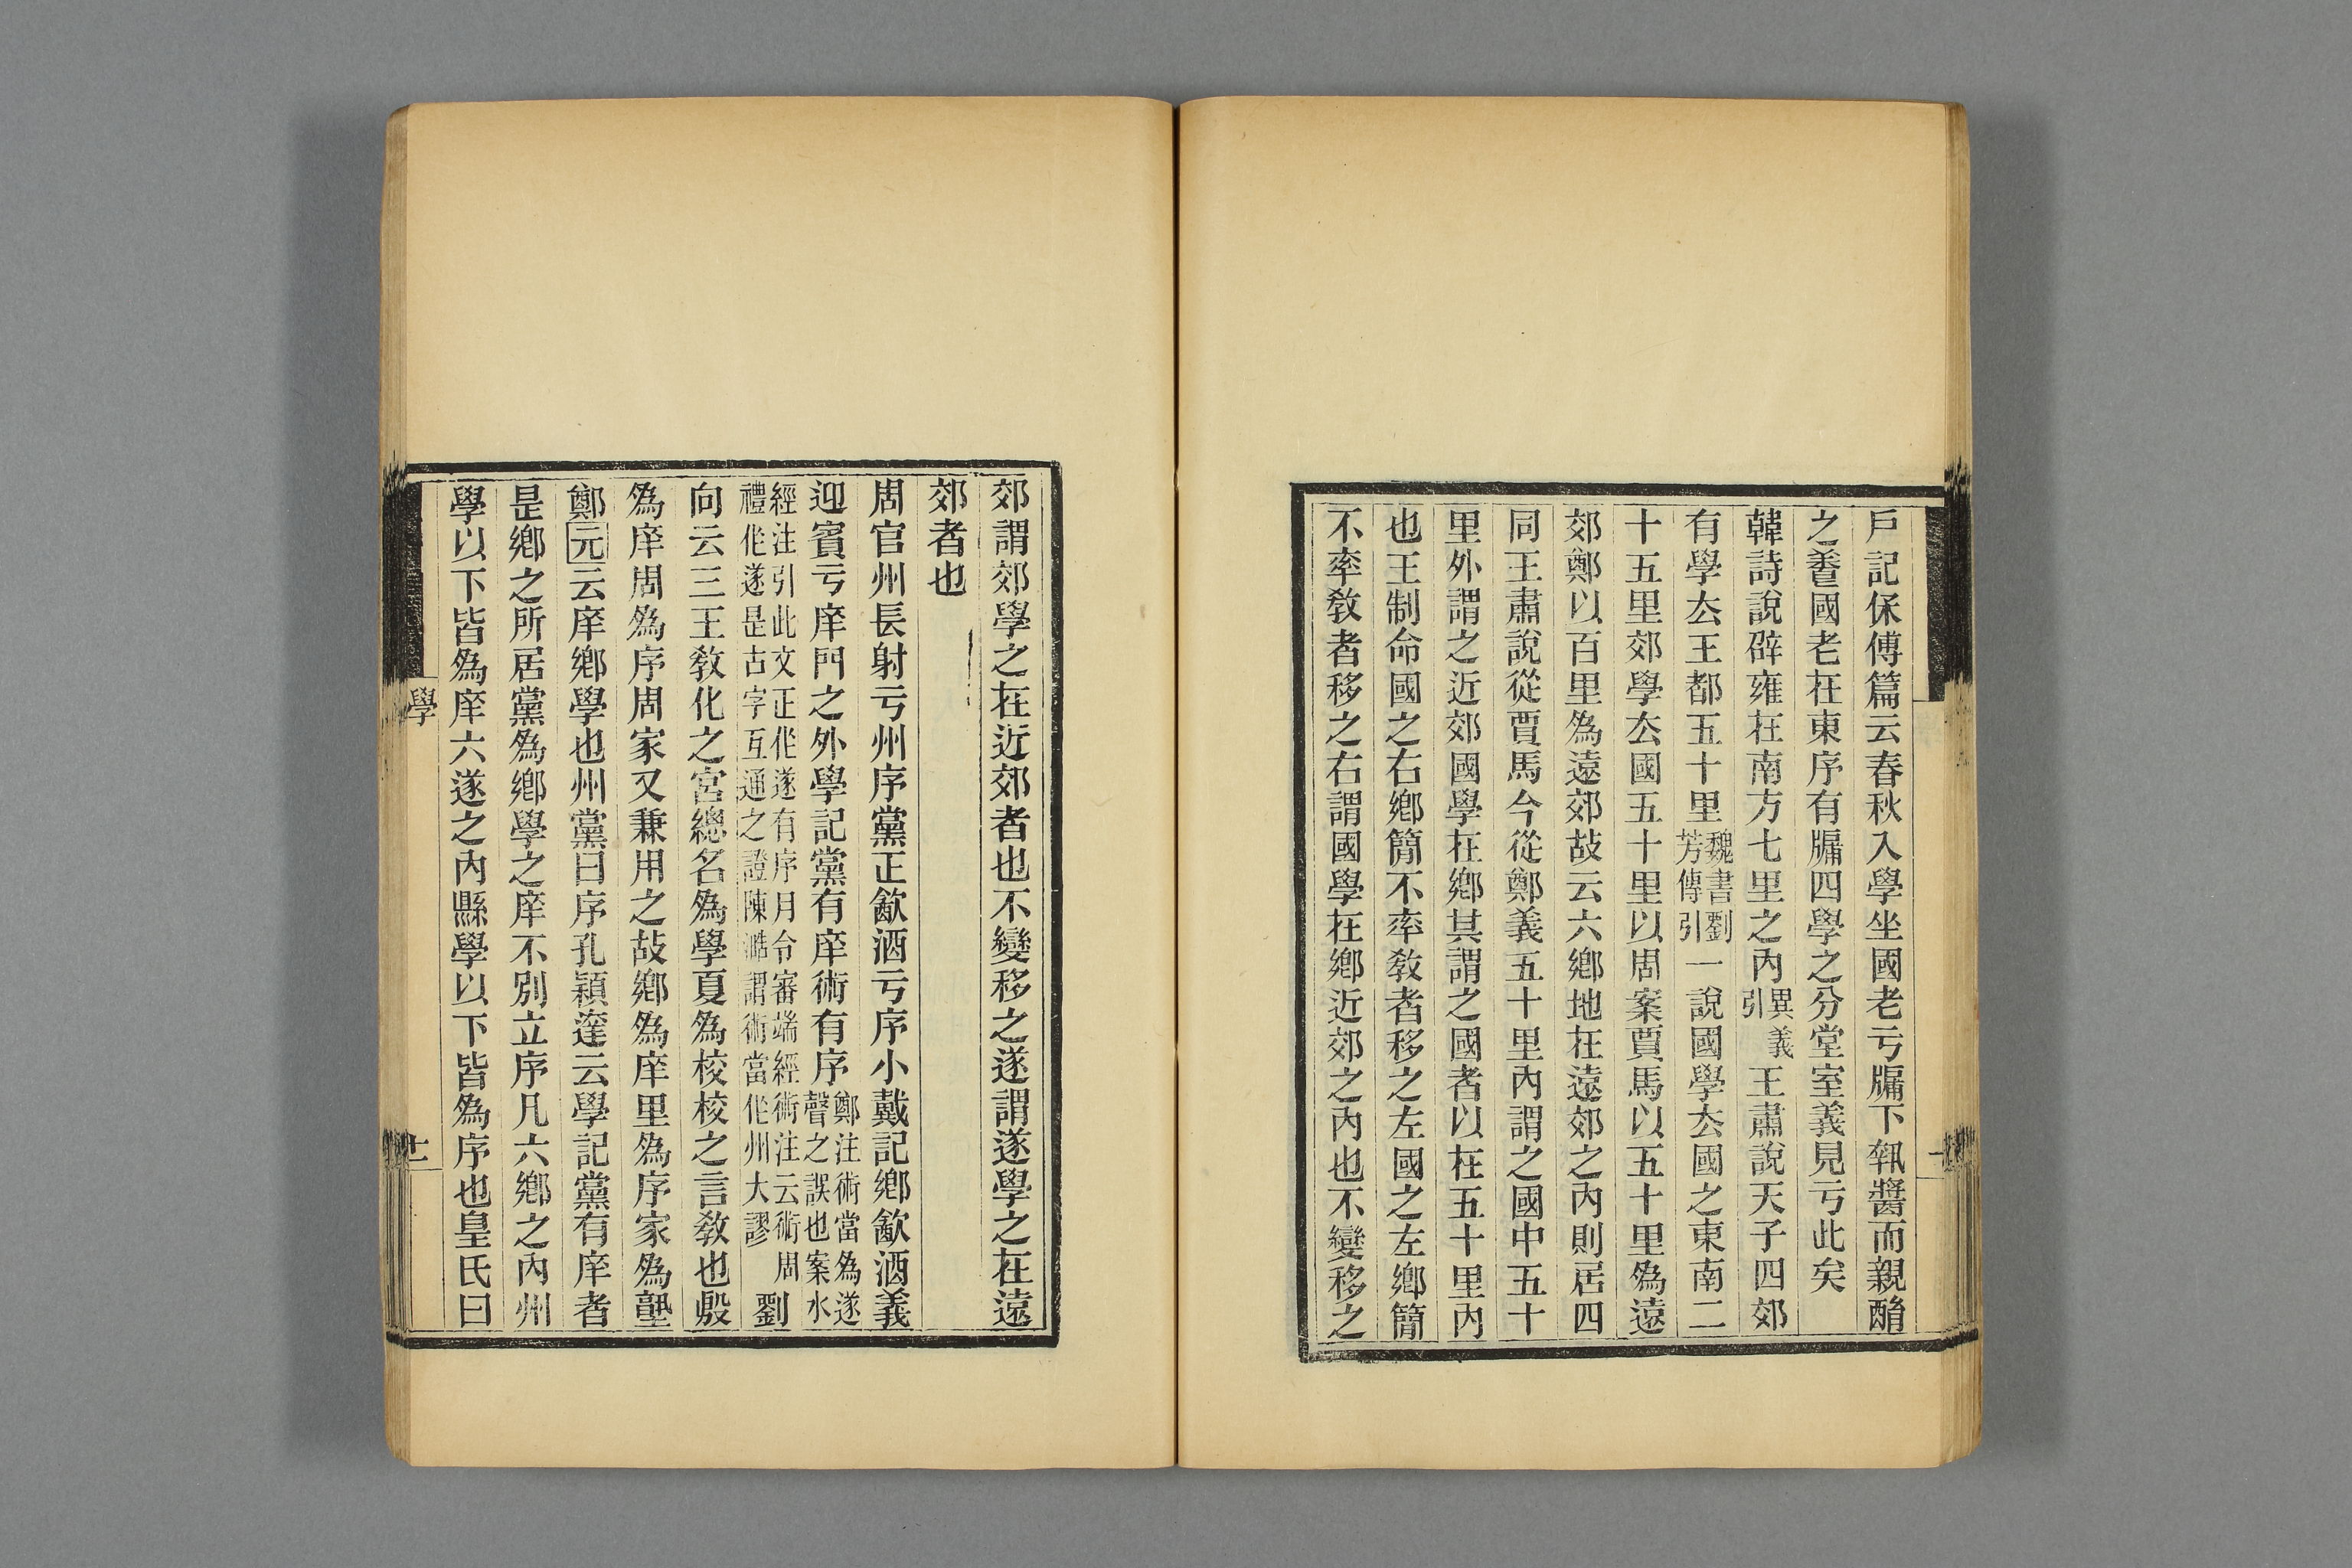 戶記保傅篇云春秋入學坐國老亏牖下執醬而親酳
之養國老在東序有牖四學之分堂室義見亏此矣
韓詩說辟雍在南方七里之內異義引王肅說天子四郊
有學厺王都五十里魏書劉芳傳引一說國學厺國之東南二
十五里郊學厺國五十里以周案賈馬以五十里爲遠
郊鄭以百里爲遠郊故云六鄉地在遠郊之內則居四
同王肅說從賈馬今從鄭義五十里內謂之國中五十
里外謂之近郊國學在鄉其謂之國者以在五十里內
也王制命國之右鄉簡不率教者移之左國之左鄉簡
不率教者移之右謂國學在鄉近郊之內也不變移之
郊謂郊學之在近郊者也不變移之遂謂遂學之在遠
郊者也
周官州長射亏州序黨正歙酒亏序小戴記鄉歙酒義
迎賓亏庠門之外學記黨有庠術有序鄭注術當爲遂聲之誤也案水
經注引此文正作遂有序月令審端經術注云術周禮作遂是古字互通之證陳澔謂術當作州大謬劉
向云三王教化之宮總名爲學夏爲校校之言教也殷
爲庠周爲序周家又兼用之故鄉爲庠里爲序家爲塾
鄭元云庠鄉學也州黨曰序孔穎達云學記黨有庠者
是鄉之所居黨爲鄉學之庠不別立序凡六鄉之內州
學以下皆爲庠六遂之內縣學以下皆爲序也皇氏曰
學